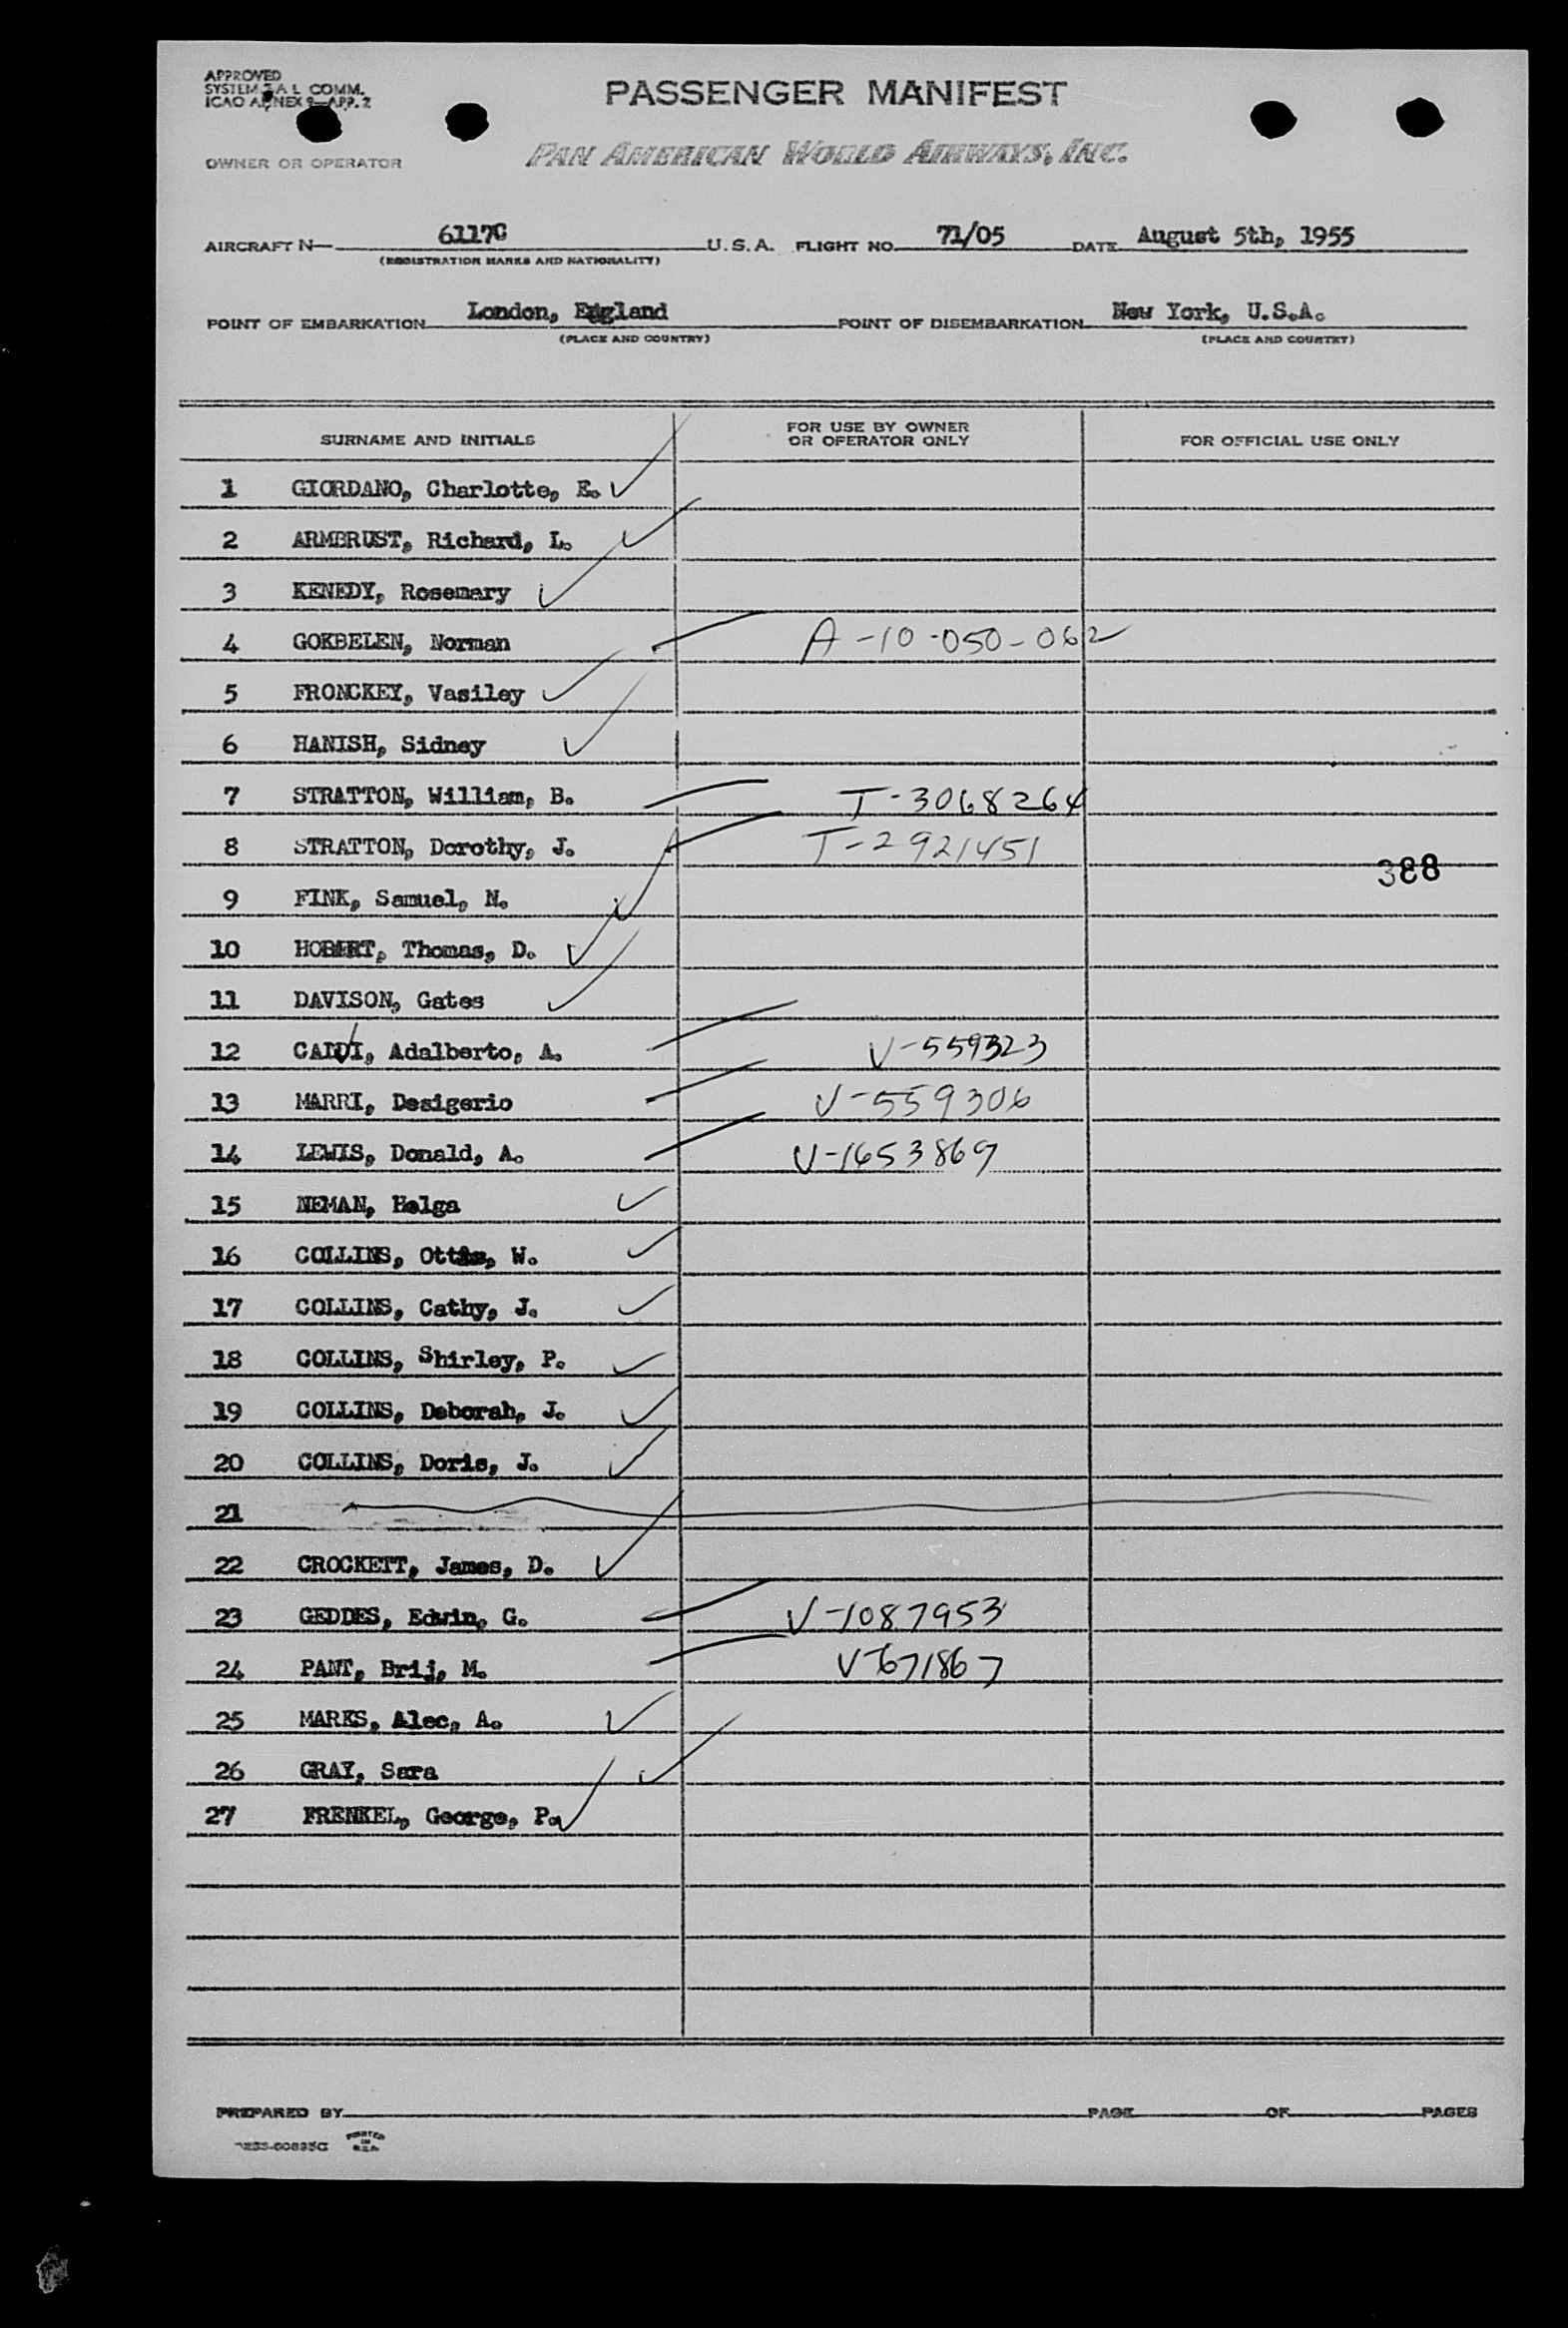 APPROVED
SYSTEM F A L COMM.
ICAO ANNEX 9—APP. 2
PASSENGER MANIFEST
OWNER OR OPERATOR PAN AMERICAN WORLD AIRWAYS, INC.
AIRCRAFT N— 6117C U.S.A. FLIGHT NO. 71/05 DATE August 5th, 1955
(REGISTRATION MARKS AND NATIONALITY)
POINT OF EMBARKATION London, England POINT OF DISEMBARKATION New York, U.S.A.
(PLACE AND COUNTRY) (PLACE AND COUNTRY)
SURNAME AND INITIALS FOR USE BY OWNER OR OPERATOR ONLY FOR OFFICIAL USE ONLY
1 GIORDANO, Charlotte, E.
2 ARMBRUST, Richard, L.
3 KENEDY, Rosemary
4 GOKBELEN, Norman A-10-050-062
5 FRONCKEY, Vasiley
6 HANISH, Sidney
7 STRATTON, William, B. T-3068264
8 STRATTON, Dorothy, J. T-2921451
388
9 FINK, Samuel, N.
10 HOBERT, Thomas, D.
11 DAVISON, Gates
12 Adalberto, A. V-559323
13 MARRI, Desigerio V-559306
14 LEWIS, Donald, A. V-1653869
15 NEMAN, Helga
16 COLLINS, W.
17 COLLINS, Cathy, J.
18 COLLINS, Shirley, P.
19 COLLINS, Deborah, J.
20 COLLINS, Doris, J.
21
22 CROCKETT, James, D.
23 GEDDES, Edwin, G. V-1087953
24 PANT, Brij, M. V-671867
25 MARKS, Alec, A.
26 GRAY, Sara
27 FRENKEL, George, P.
PREPARED BY PAGE OF PAGES
PRINTED IN U.S.A.